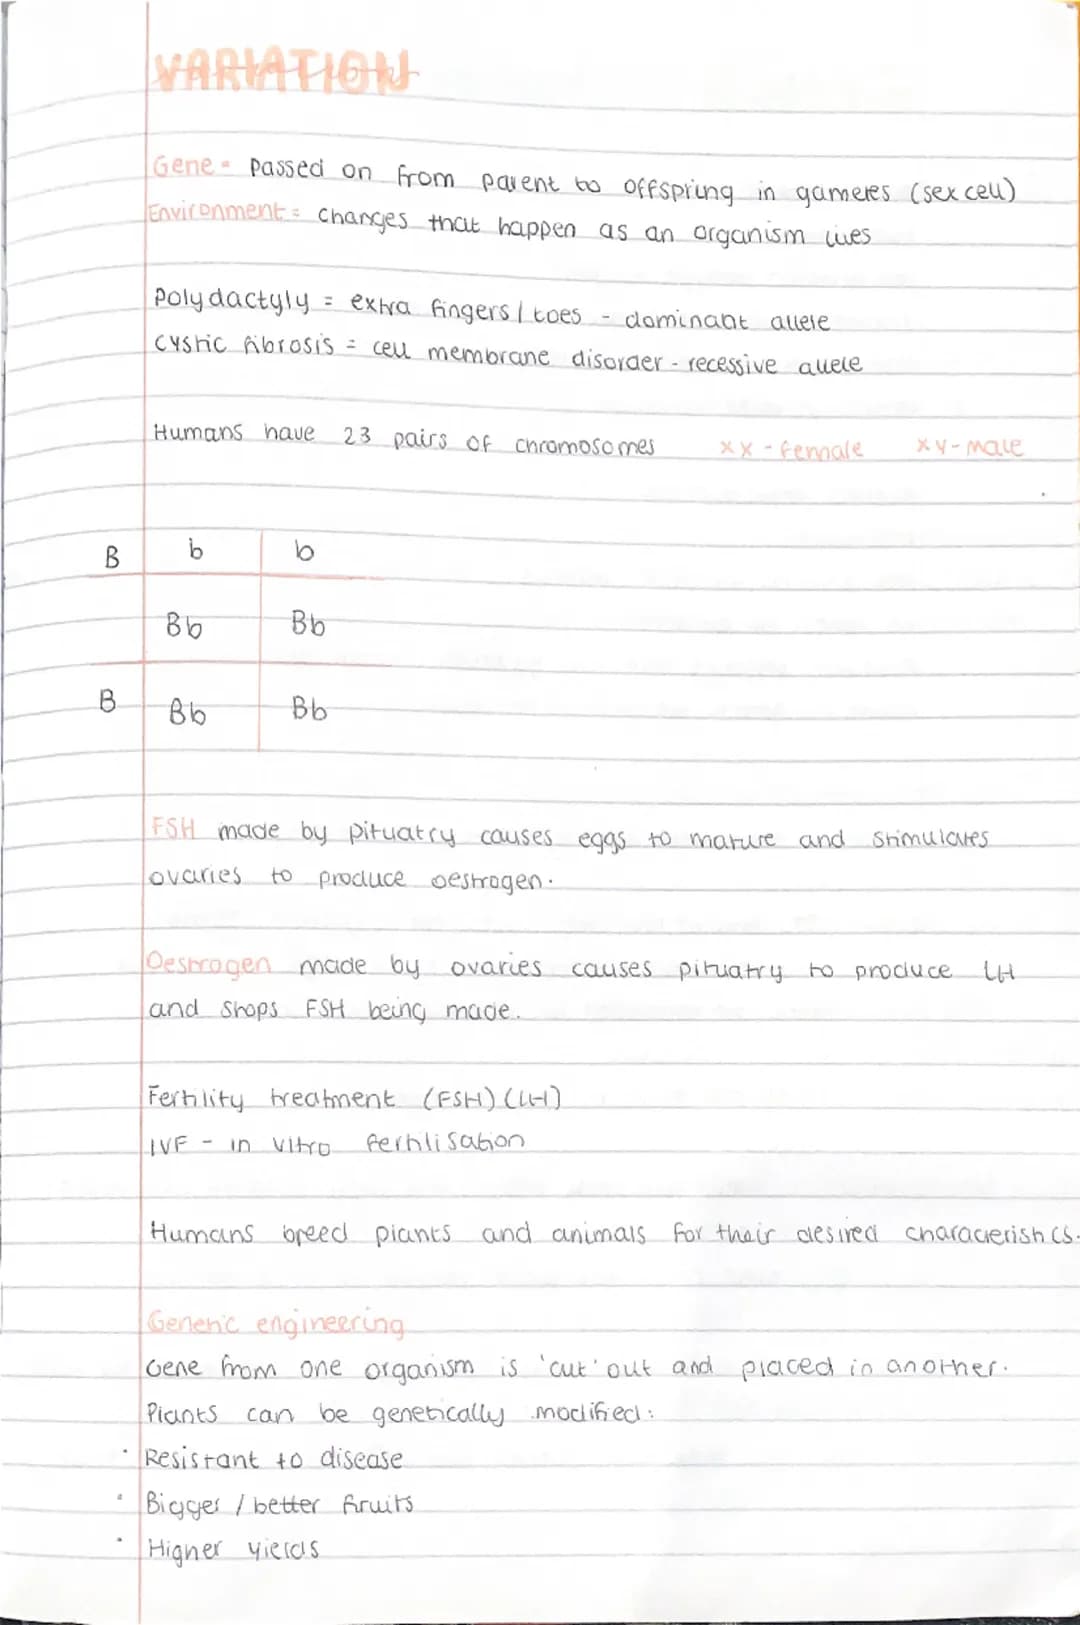 VARIATION
Gene = Passed on from parent to offspring in gametes (sex cell)
Environment = changes that happen as an organism lives
Polydactyly = extra fingers / toes - dominant allele
cystic fibrosis = cell membrane disorder - recessive allele
Humans have 23 pairs of chromosomes xx - female xy - male
B b b
Bb Bb
B Bb Bb
FSH made by pituatry causes eggs to mature and stimulates
ovaries to produce oestrogen.
Oestrogen made by ovaries causes pituatry to produce LH
and stops FSH being made.
Fertility treatment (FSH) (LH)
IVF - in vitro fertilisation
Humans breed plants and animals for their desired characteristics.
Genetic engineering
Gene from one organism is 'cut' out and placed in another.
Plants can be genetically modified:
· Resistant to disease
· Bigger / better fruits
· Higher yields